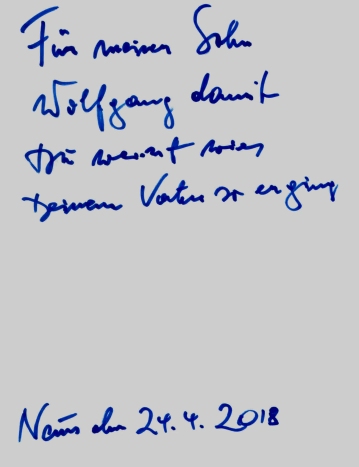 Für meinen Sohn
Wolfgang damit
Du weisst wies
Deinem Vater so erging
Neuss den 24.4.2018